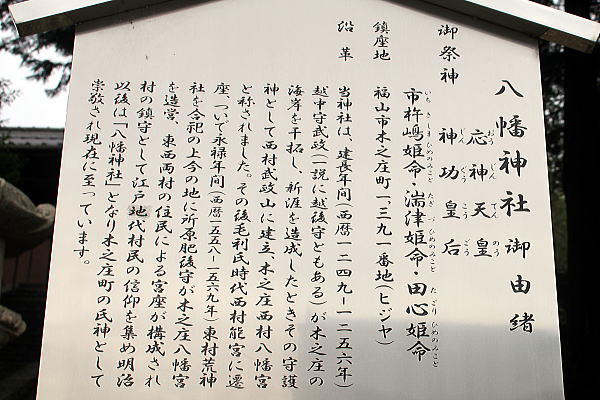 八幡神社御由緒
御祭神 応神天皇
おうしんてんのう
神功皇后
じんぐうこうごう
市杵嶋姫命・湍津姫命・田心姫命
いちきしまひめのみこと たぎつひめのみこと たごりひめのみこと
鎮座地 福山市木之庄町一、三九一番地(ヒジヤ)
沿革 当神社は、建長年間(西暦一二四九ー一二五六年)
越中守武政(一説に越後守ともある)が木之庄の
海岸を干拓し、新涯を造成したときその守護
神として西村武政山に建立、木之庄西村八幡宮
と称されました。その後毛利氏時代西村能宮に遷
座、ついで永禄年間(西暦一五五八ー一五六九年)東村荒神
社を合祀の上今の地に所原肥後守が木之庄八幡宮
を造営、東西両村の住民による宮座が構成され
村の鎮守として江戸地代村民の信仰を集め明治
以後は「八幡神社」となり木之庄町の氏神として
崇敬され現在に至っています。